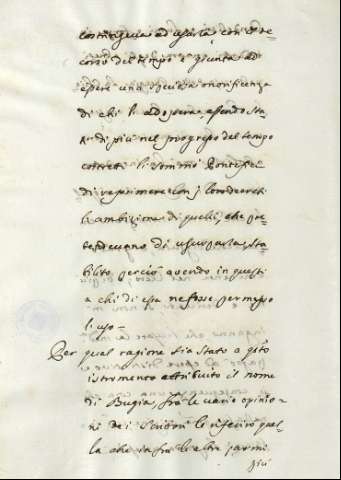 costringeua ad usarla con il de=
corso del tempo è giunta ad
essere una specie d'onorificenza
di chi l'adopera, essendo sta=
ti di più nel progresso del tempo
costretti li Sommi Pontefici
di reprimere con i loro decreti
l'ambizione di quelli, che pre=
tendeuano di usurparla, sta=
bilito perciò auendo in questi
a chi di essa ne fosse permesso
l'uso-
Per qual ragione sia stato a q̃sto
istromento attribuito il nome
di Bugia, frà le varie opinio=
ni dei Scrittori le riferirò quel=
la che infra l'altre parmi